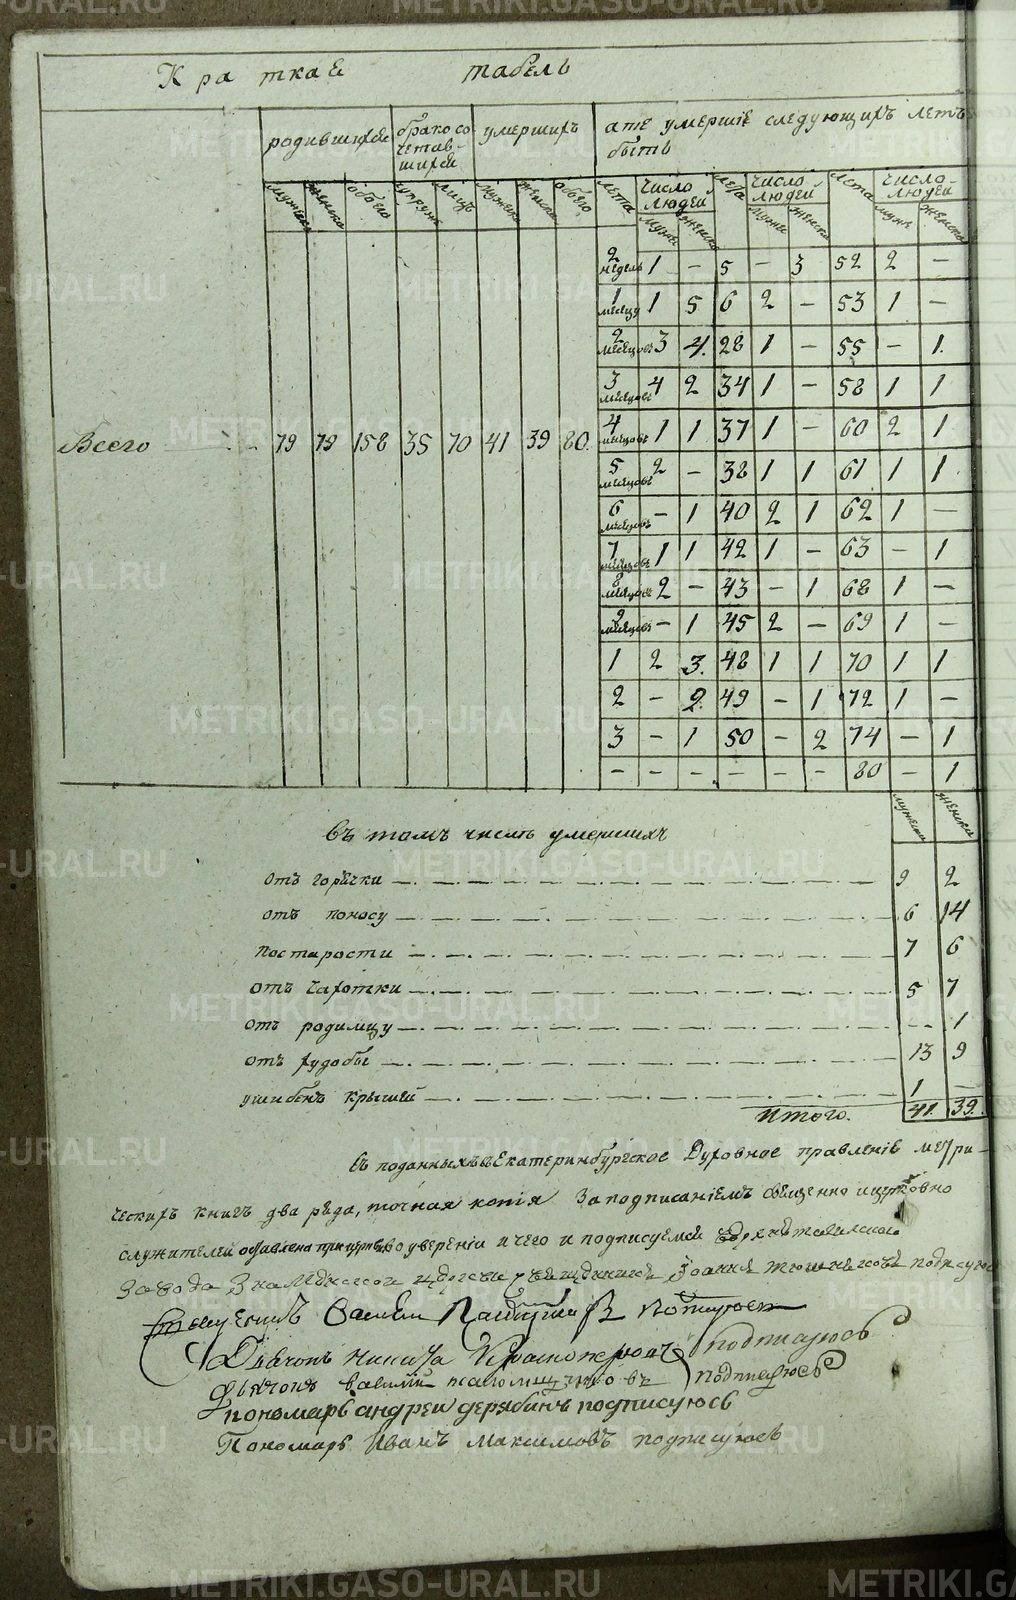 Краткая табель
родившихся бракосочетавшихся умершихъ а те умершіе следующихъ летъ быть
мужеска женска обоего супруж лицъ мужеска женска обоего лета число людей лета число людей лета число людей
муже женска муже женска муже женска
2 недель 1 – 5 – 3 52 2 –
1 месяцу 1 5 6 2 – 53 1 –
2 месяцовъ 3 4. 28 1 – 55 – 1.
3 месяцовъ 4 2 34 1 – 58 1 1
Всего 79 79 158 35 70 41 39 80. 4 месяцовъ 1 1 37 1 – 60 2 1
5 месяцовъ 2 – 38 1 1 61 1 1
6 месяцовъ – 1 40 2 1 62 1 –
7 месяцовъ 1 1 42 1 – 63 – 1
8 месяцовъ 2 – 43 – 1 68 1 –
9 месяцовъ – 1 45 2 – 69 1 –
1 2 3. 48 1 1 70 1 1
2 – 2. 49 – 1 72 1 –
3 – 1 50 – 2 74 – 1
– – – – – – 80 – 1
мужеска женска
въ томъ числѣ умершихъ
отъ горячки 9 2
отъ поносу 6 14
по старости 7 6
отъ чахотки 5 7
отъ родимцу – 1
отъ худобы 13 9
ушибенъ крышей 1 –
Итого. 41. 39.
съ поданныхъ въ Екатеринбургское Духовное правленіе метри-
ческихъ книгъ два ряда, точная копія За подписаніемъ священно ицерковно
служителей оставлена при церкви во увереніи чего и подписуемся Верхнетагилскаго
Завода Знаменской церкви священникъ Іоаннъ Тюшняковъ подписуюсь
Василей
Дьячокъ Никита подписуюсь
Дьячокъ василий подписуюсь
пономарь андреи дерябинъ подписуюсь
Пономарь Иванъ Максимовъ подписуюсь
METRIKI.GASO-URAL.RU